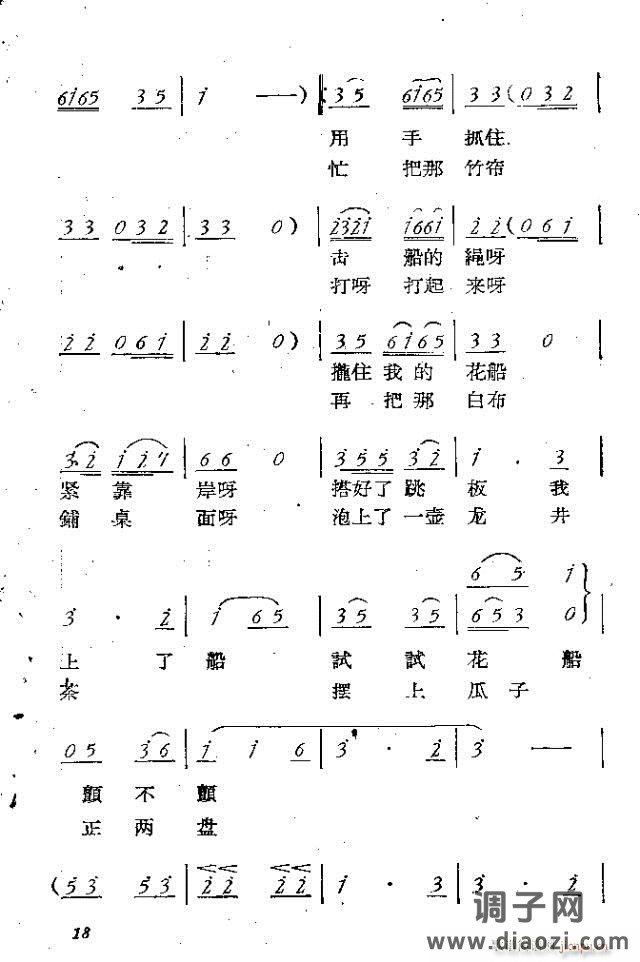 6i65 35 | i —) |: 35 6i65 | 33(032
用手抓住
忙把那竹帘
33 032 | 33 0) | 2321 i66i | 22(06i
船的繩呀
打呀打起来呀
22 06i | 22 0) | 35 6i65 | 33 0
攏住我的花船
再把那白布
3·2 i24 | 66 0 | 3555 32 | i · 3
紧靠岸呀搭好了跳板我
鋪桌面呀泡上了一壶龙井
6 5 i
3 · 2 | i 65 | 35 35 | 653 0
上了船試試花船
茶摆上瓜子
05 36 | i i 6 | 3 · 2 | 3 —
顫不顫
正两盘
(53 53 | 22 22 | i · 3 | 3 · 2
18
调子网
www.diaozi.com